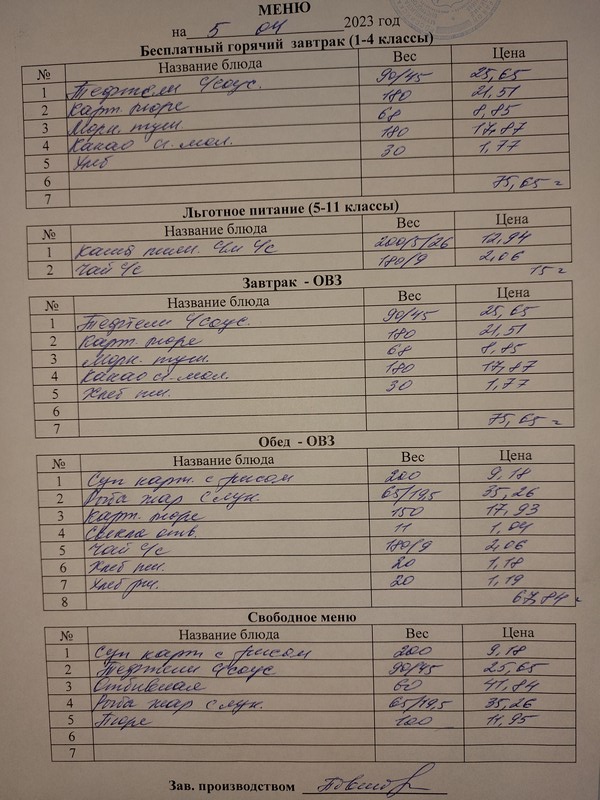 МЕНЮ
на 5 04 2023 год
Бесплатный горячий завтрак (1-4 классы)
№ Название блюда Вес Цена
1 Тефтели с/соус. 90/45 25,65
2 Карт. пюре 180 21,51
3 Морк. туш. 68 8,85
4 Какао сг. мол. 180 17,87
5 Хлеб 30 1,77
6
7 75,65
Льготное питание (5-11 классы)
№ Название блюда Вес Цена
1 Каша пшен. 200/5/26 12,94
2 Чай с/с 180/9 2,06
15
Завтрак - ОВЗ
№ Название блюда Вес Цена
1 Тефтели с/соус. 90/45 25,65
2 Карт. пюре 180 21,51
3 Морк. туш. 68 8,85
4 Какао сг. мол. 180 17,87
5 Хлеб пш. 30 1,77
6
7 75,65
Обед - ОВЗ
№ Название блюда Вес Цена
1 Суп карт. с рисом 200 9,18
2 Рыба жар с лук. 65/19,5 35,26
3 Карт. пюре 150 17,93
4 Свекла отв. 11 1,04
5 Чай с/с 180/9 2,06
6 Хлеб пш. 20 1,18
7 Хлеб рж. 20 1,19
8 67,84
Свободное меню
№ Название блюда Вес Цена
1 Суп карт. с рисом 200 9,18
2 Тефтели с/соус 90/45 25,65
3 Отбивная 60 41,84
4 Рыба жар с лук. 65/19,5 35,26
5 Пюре 100 11,95
6
7
Зав. производством